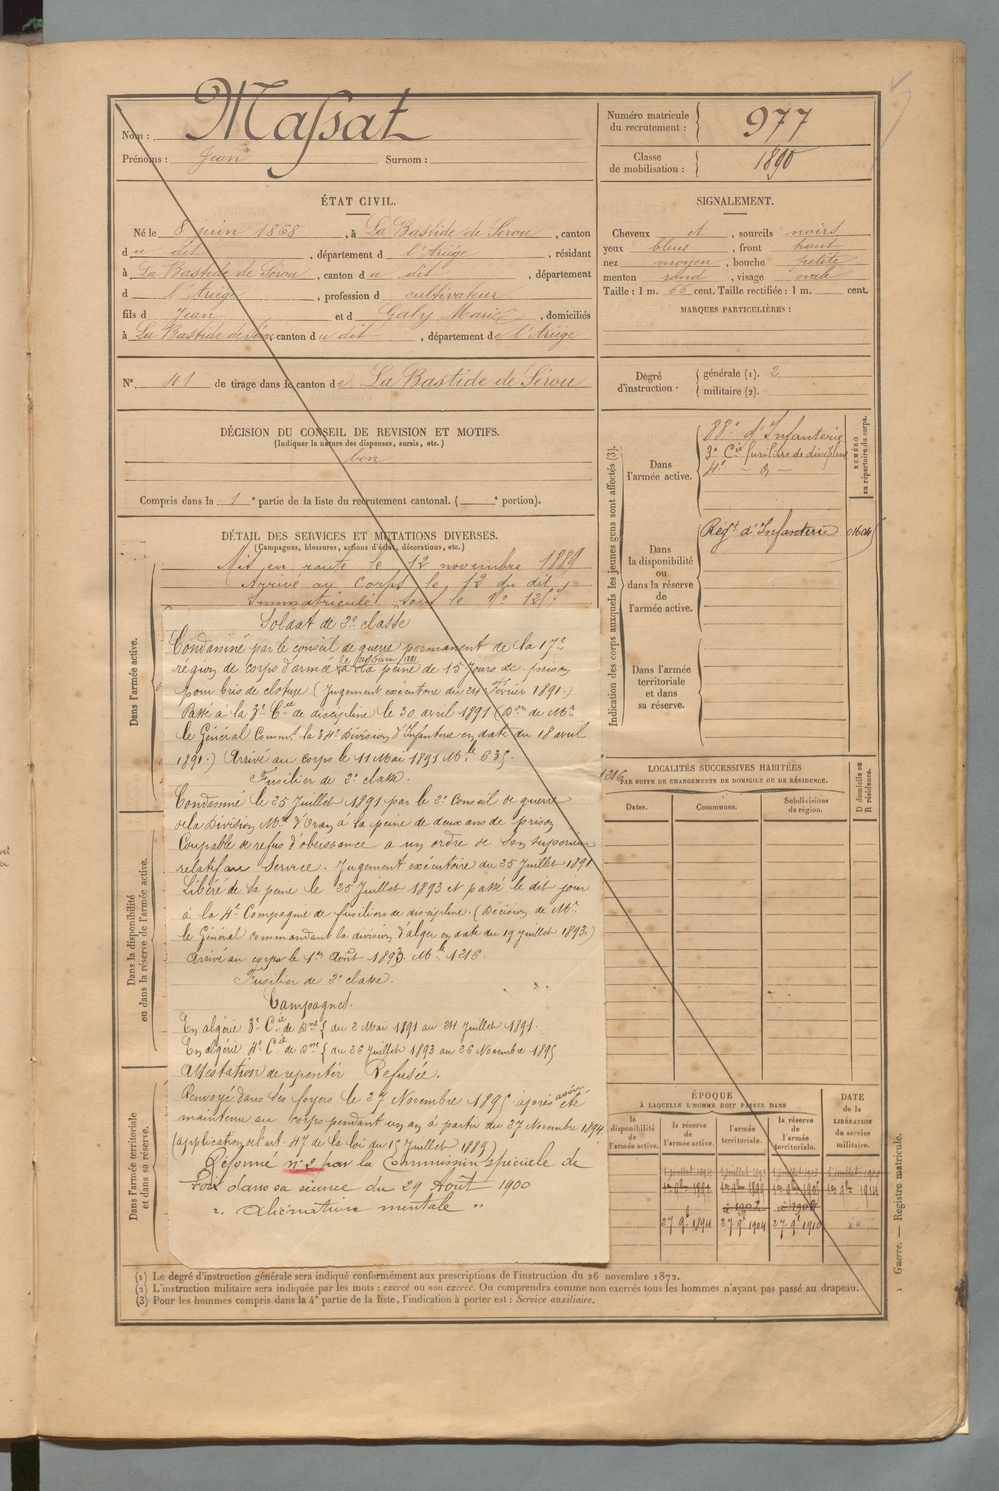 Nom : Massat
Prénoms : Jean Surnom :
Numéro matricule du recrutement : 977
Classe de mobilisation : 1890
ÉTAT CIVIL.
Né le 8 juin 1868, à La Bastide de Sérou, canton
du dit, département d l'Ariège, résidant
à La Bastide de Sérou, canton du dit, département
d l'Ariège, profession d cultivateur
fils d Jean et d Galy Marie, domiciliés
à La Bastide de Sérou, canton du dit, département de l'Ariège
N° 41 de tirage dans le canton de La Bastide de Sérou
DÉCISION DU CONSEIL DE REVISION ET MOTIFS.
(Indiquer la nature des dispenses, sursis, etc.)
bon
Compris dans la 1e partie de la liste du recrutement cantonal. ( e portion).
DÉTAIL DES SERVICES ET MUTATIONS DIVERSES.
(Campagnes, blessures, actions d'éclat, décorations, etc.)
Mis en route le 12 novembre 1889
Arrivé au corps le 12 du dit,
Immatriculé sous le N°
Soldat de 2e classe
Condamné par le conseil de guerre permanent de la 17e
région de corps d'armée à la peine de 15 jours de prison
pour bris de cloture (Jugement exécutoire du 24 Février 1891.)
Passé à la 3e Cie de discipline le 30 avril 1891 (Don de Mr
le Général Commt la 34e Division d'Infanterie en date du 18 avril
1891.) Arrivé au corps le 11 Mai 1891 Mle 635.
Fusilier de 2e classe.
Condamné le 25 Juillet 1891 par le 2e Conseil de guerre
de la Division Mre d'Oran à la peine de deux ans de prison
Coupable de refus d'obéissance à un ordre de son supérieur
relatif au Service. Jugement exécutoire du 25 Juillet 1891
Libéré de sa peine le 25 Juillet 1893 et passé le dit jour
à la 4e Compagnie de fusiliers de discipline. (Décision de Mr
le Général commandant la division d'alger en date du 19 Juillet 1893.)
Arrivé au corps le 1er Août 1893. Mle 1216.
Fusilier de 2e classe.
Campagnes.
En algérie 3e Cie de Dne { du 2 Mai 1891 au 24 Juillet 1891.
En algérie 4e Cie de Dne { du 26 Juillet 1893 au 26 Novembre 1895
Attestation de repentir Refusée.
Renvoyé dans ses foyers le 27 Novembre 1895 après avoir été
maintenu au corps pendant un an à partir du 27 Novembre 1894
(application de l'art. 47 de la loi du 15 Juillet 1889)
Réformé n° 2 par la Commission spéciale de
Foix dans sa séance du 29 Août 1900
" aliénation mentale "
Dans l'armée active.
Dans la disponibilité ou dans la réserve de l'armée active.
Dans l'armée territoriale et dans sa réserve.
SIGNALEMENT.
Cheveux et, sourcils noirs
yeux bleus, front haut
nez moyen, bouche petite
menton rond, visage ovale
Taille : 1 m. 66 cent. Taille rectifiée : 1 m. cent.
MARQUES PARTICULIÈRES :
Degré d'instruction.
générale (1). 2
militaire (2).
Indication des corps auxquels les jeunes gens sont affectés (3).
NUMÉRO au répertoire du corps.
Dans l'armée active.
88e d'Infanterie
3e Cie fusiliers de discipline
4e
Dans la disponibilité ou dans la réserve de l'armée active.
Régt d'Infanterie
Dans l'armée territoriale et dans sa réserve.
1216
LOCALITÉS SUCCESSIVES HABITÉES
PAR SUITE DE CHANGEMENTS DE DOMICILE OU DE RÉSIDENCE.
Dates. Communes. Subdivisions de région.
D domicile ou R résidence.
ÉPOQUE
À LAQUELLE L'HOMME DOIT PASSER DANS
la disponibilité de l'armée active.
la réserve de l'armée active.
l'armée territoriale.
la réserve de l'armée territoriale.
DATE de la LIBÉRATION du service militaire.
27 9bre 1894 27 9bre 1904 27 9bre 1910
(1) Le degré d'instruction générale sera indiqué conformément aux prescriptions de l'instruction du 26 novembre 1872.
(2) L'instruction militaire sera indiquée par les mots : exercé ou non exercé. On comprendra comme non exercés tous les hommes n'ayant pas passé au drapeau.
(3) Pour les hommes compris dans la 4e partie de la liste, l'indication à porter est : Service auxiliaire.
Guerre. — Registre matricule.